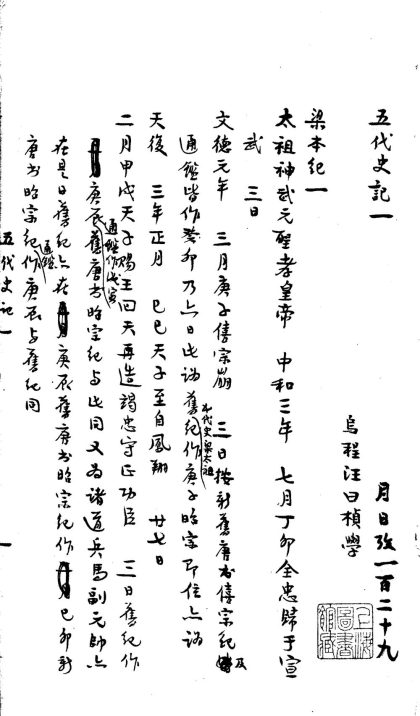 月日攷一百二十九
烏程汪曰楨學
上海
圖書
館藏
五代史記一
梁本紀一
太祖神武元聖孝皇帝　中和三年　七月丁卯全忠歸于宣
武　三日
文德元年　三月庚子僖宗崩　三日按新舊唐書僖宗紀及
通鑑皆作癸卯乃六日此誤舊紀五代史梁太祖作庚子昭宗即位亦誤
天復　三年正月　己巳天子至自鳳翔　廿七日
二月甲戌天子賜王回天再造竭忠守正功臣　三日舊紀作
庚辰通鑑作戊寅舊唐書昭宗紀与此同又為諸道兵馬副元帥亦
在是日舊紀亦在庚辰舊唐書昭宗紀作己卯新
唐書昭宗紀通鑑作庚辰与舊紀同
五代史記一　一